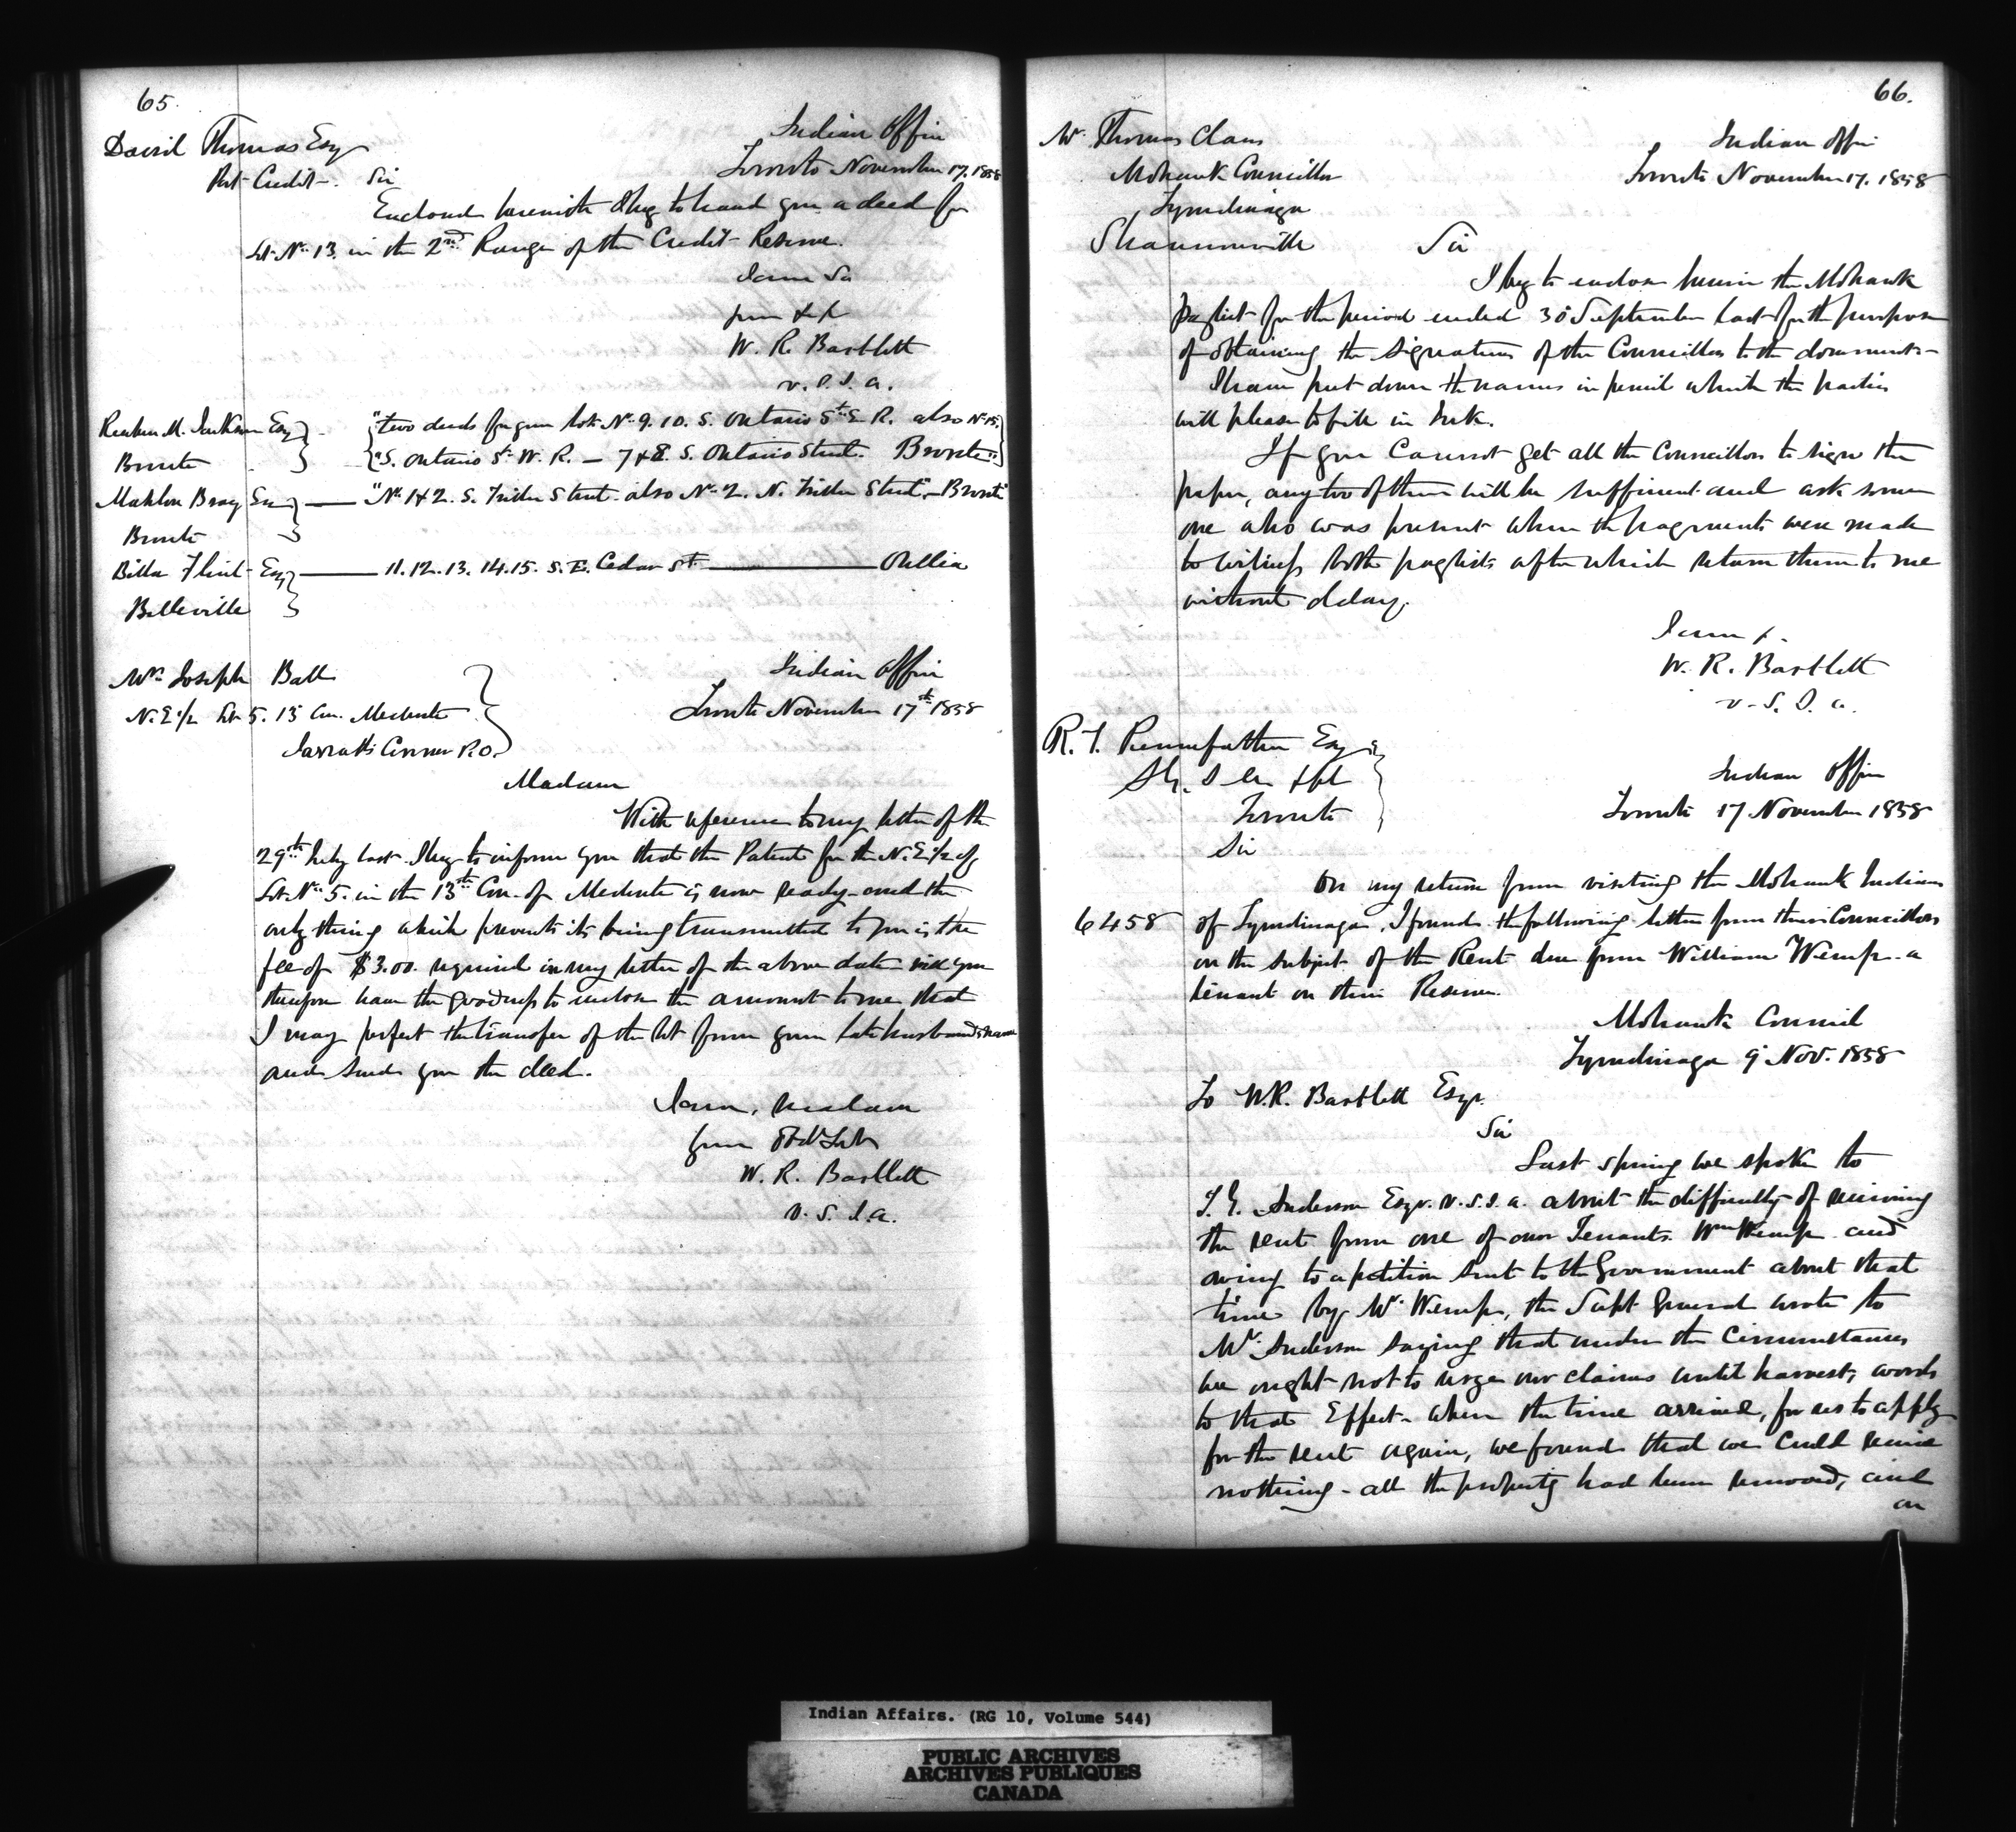 65.
David Thomas Esq
Port Credit. Sir
Indian Office
Toronto November 17. 1858
Enclosed herewith I beg to hand you a deed for
Lot No. 13. in the 2nd Range of the Credit Reserve.
I am Sir
your &c
W. R. Bartlett
v. S. I. a.
Reuben M. Jackson Esq
Bronte
"two deeds for your lots No. 9. 10. S. Ontario St. E. R. also No 15.
"S. Ontario St. W. R. — 7 & 8. S. Ontario Street. Bronte"
Mahlon Bray Esq — "No. 1 & 2. S. Triller Street also No. 2. N. Triller Street" — Bronte"
Bronte
Billa Flint Esq — 11. 12. 13. 14. 15. S. E. Cedar St — Orillia
Belleville
Mrs Joseph Ball
N. E. 1/2 Lot 5. 13 Con. Medonte
Jarratts Corner P.O.
Indian Office
Toronto November 17th 1858
Madam
With reference to my letter of the
29th July last I beg to inform you that the Patent for the N. E 1/2 of
Lot No. 5. in the 13th Con. of Medonte is now ready and the
only thing which prevents its being transmitted to you is the
fee of $3.00 required in my letter of the above date will you
therefore have the goodness to enclose the amount to me that
I may perfect the transfer of the lot from your late husbands name
and send you the deed.
I am, Madam
your Obdt Servt
W. R. Bartlett
v. S. I. a.
66.
Mr. Thomas Claus
Mohawk Councillor
Tyendinaga
Shannonville
Indian Office
Toronto November 17. 1858
Sir
I beg to enclose herein the Mohawk
paylist for the period ended 30 September last for the purpose
of obtaining the signatures of the Councillors to the documents -
I have put down the names in pencil which the parties
will please to fill in Ink.
If you Cannot get all the Councillors to sign the
paper, any two of them will be sufficient and ask some
one who was present when the payments were made
to witness both paylists after which return them to me
without delay.
I am &.
W. R. Bartlett
v. S. I. a.
R. T. Pennefather Esq
Toronto
Indian Office
Toronto 17 November 1858
Sir
On my return from visiting the Mohawk Indians
6458 of Tyendinaga, I found the following letter from their Councillors
on the subject of the Rent due from William Wemp a
tenant on their Reserve.
Mohawk Council
Tyendinaga 9 Nov. 1858
To W. R. Bartlett Esqr.
Sir
Last spring we spoke to
T. G. Anderson Esqr. v. S. I. a. about the difficulty of receiving
the rent from one of our Tenants Wm Wemp and
owing to a petition sent to the Government about that
time by Mr. Wemp, the Supt General wrote to
Mr. Anderson saying that under the Circumstances
we ought not to urge our claims until harvest, words
to that Effect - when the time arrived, for us to apply
for the rent again, we found that we Could receive
nothing - all the property had been removed, and
on
Indian Affairs. (RG 10, Volume 544)
PUBLIC ARCHIVES
ARCHIVES PUBLIQUES
CANADA